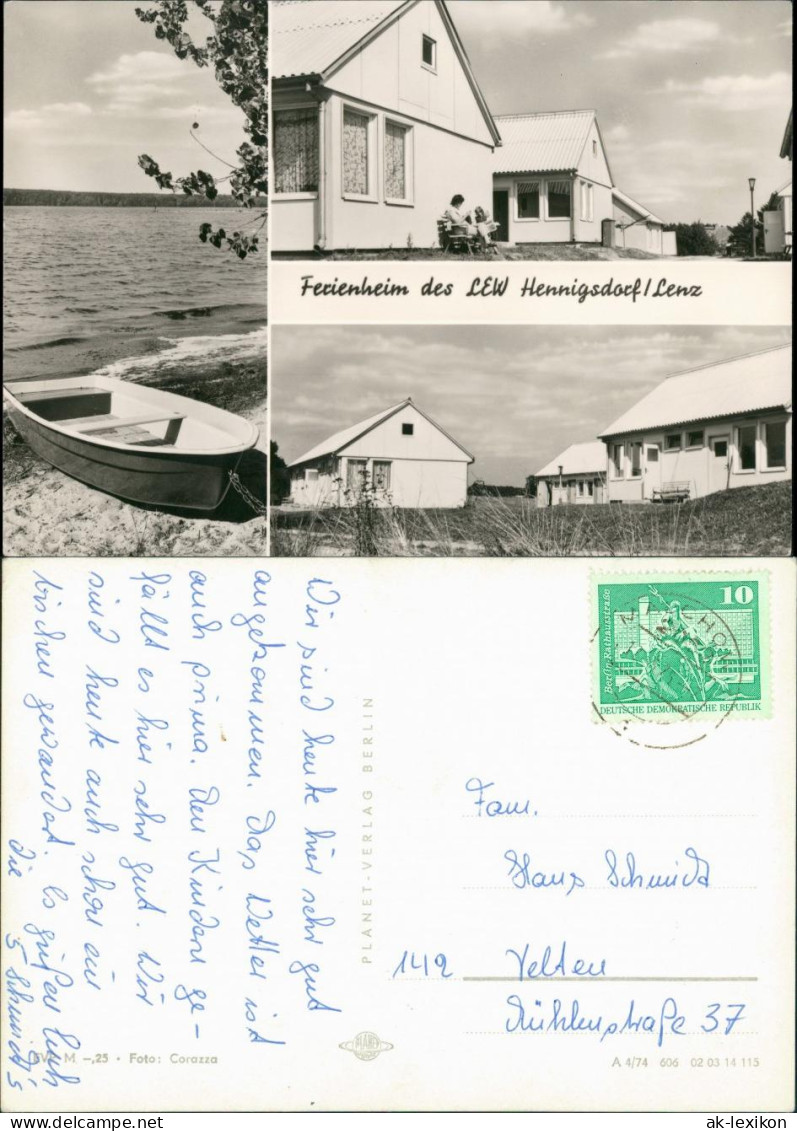 Ferienheim des LEW Hennigsdorf/Lenz
Wir sind heute hier sehr gut
angekommen. Das Wetter ist
auch prima. Den Kindern ge-
fällt es hier sehr gut. Wir
sind heute auch schon ein
bischen gewandert. Es grüßen Euch
die 5 Schmidt's
EVP M -,25 · Foto: Corazza
PLANET-VERLAG BERLIN
PLANET
10
Berlin-Rathausstraße
DEUTSCHE DEMOKRATISCHE REPUBLIK
MALCHOW
Fam.
Hans Schmidt
142 Velten
Mühlenstraße 37
A 4/74 606 02 03 14 115
ak-lexikon.com